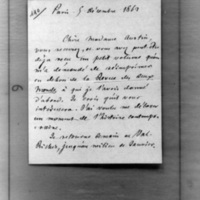 Paris 5 décembre 1861
Chère Madame Austin,
vous recevrez, si vous n'avez peut être
déjà reçu un petit volume qu'on
m'a demandé de réimprimer
en dehors de la Revue des deux
Mondes à qui je l'avais donné
d'abord. Je crois qu'il vous
intéressera. J'ai voulu me donner
un moment de l'histoire contempo-
raine.
Je retournerai au Val
Richer, jusqu'au milieu de Janvier.